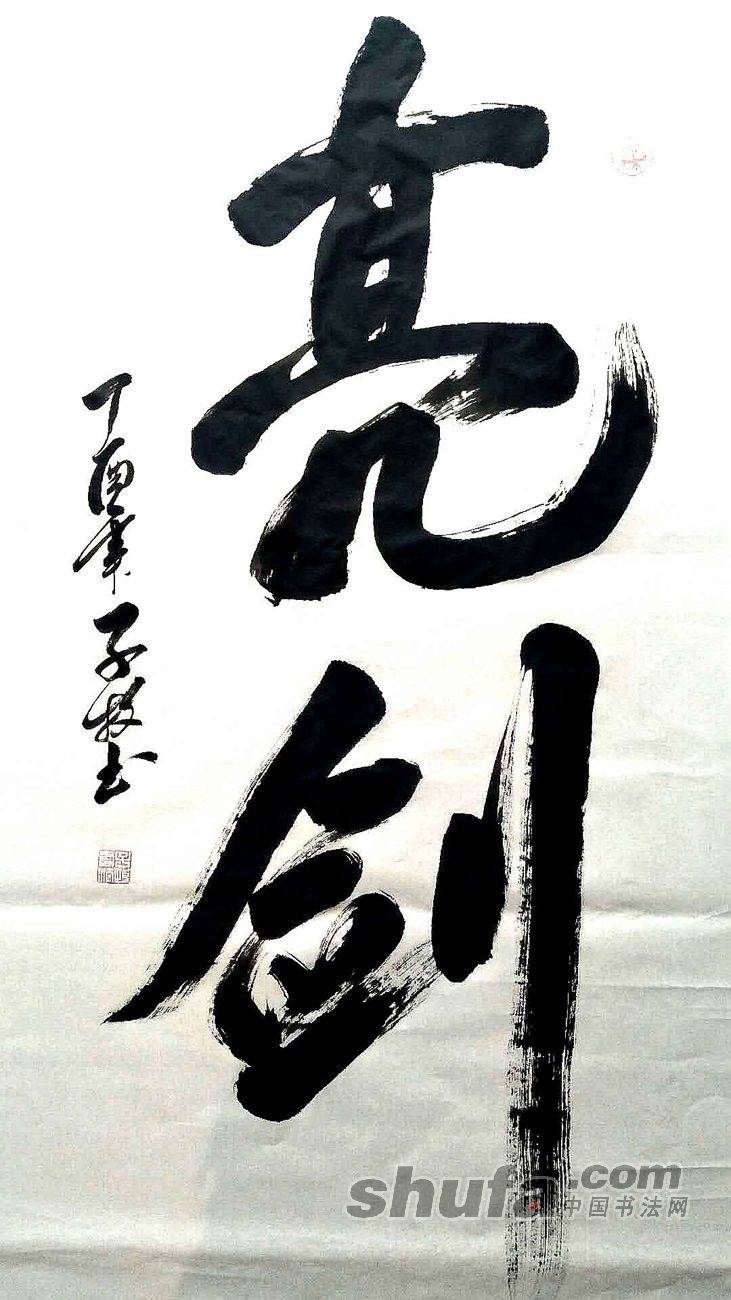 亮剑
丁酉年子牧书
shufa.com
中国书法网